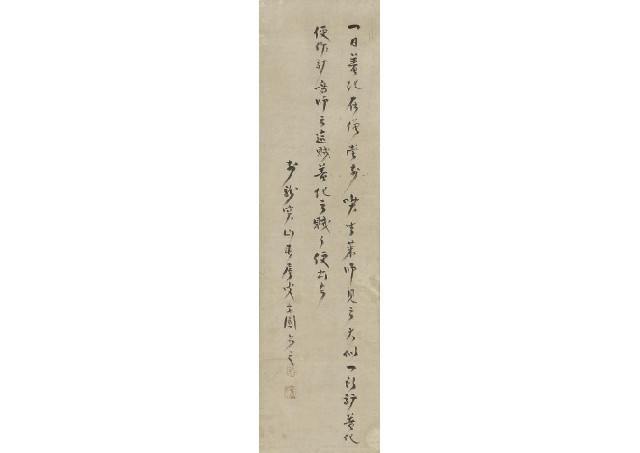 一日普化在僧堂前喫生菜師見云大似一頭驢普化
便作驢鳴師云這賊普化云賊々便出去
前龍寶山